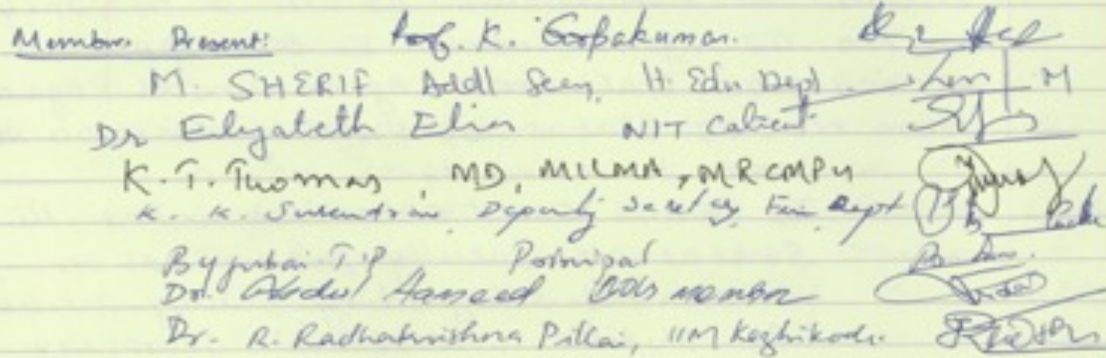 Members Present: Prof. K. Gopakumar.
M. SHERIF Addl Secy, H. Edu Dept
Dr Elizabeth Elias NIT Calicut
K. T. Thomas, MD, MILMA, MRCMPU
K. K. Surendran Deputy Secretary Fin Dept
Byjubai T.P Principal
Dr. Abdul Hameed BOG member
Dr. R. Radhakrishna Pillai, IIM Kozhikode.